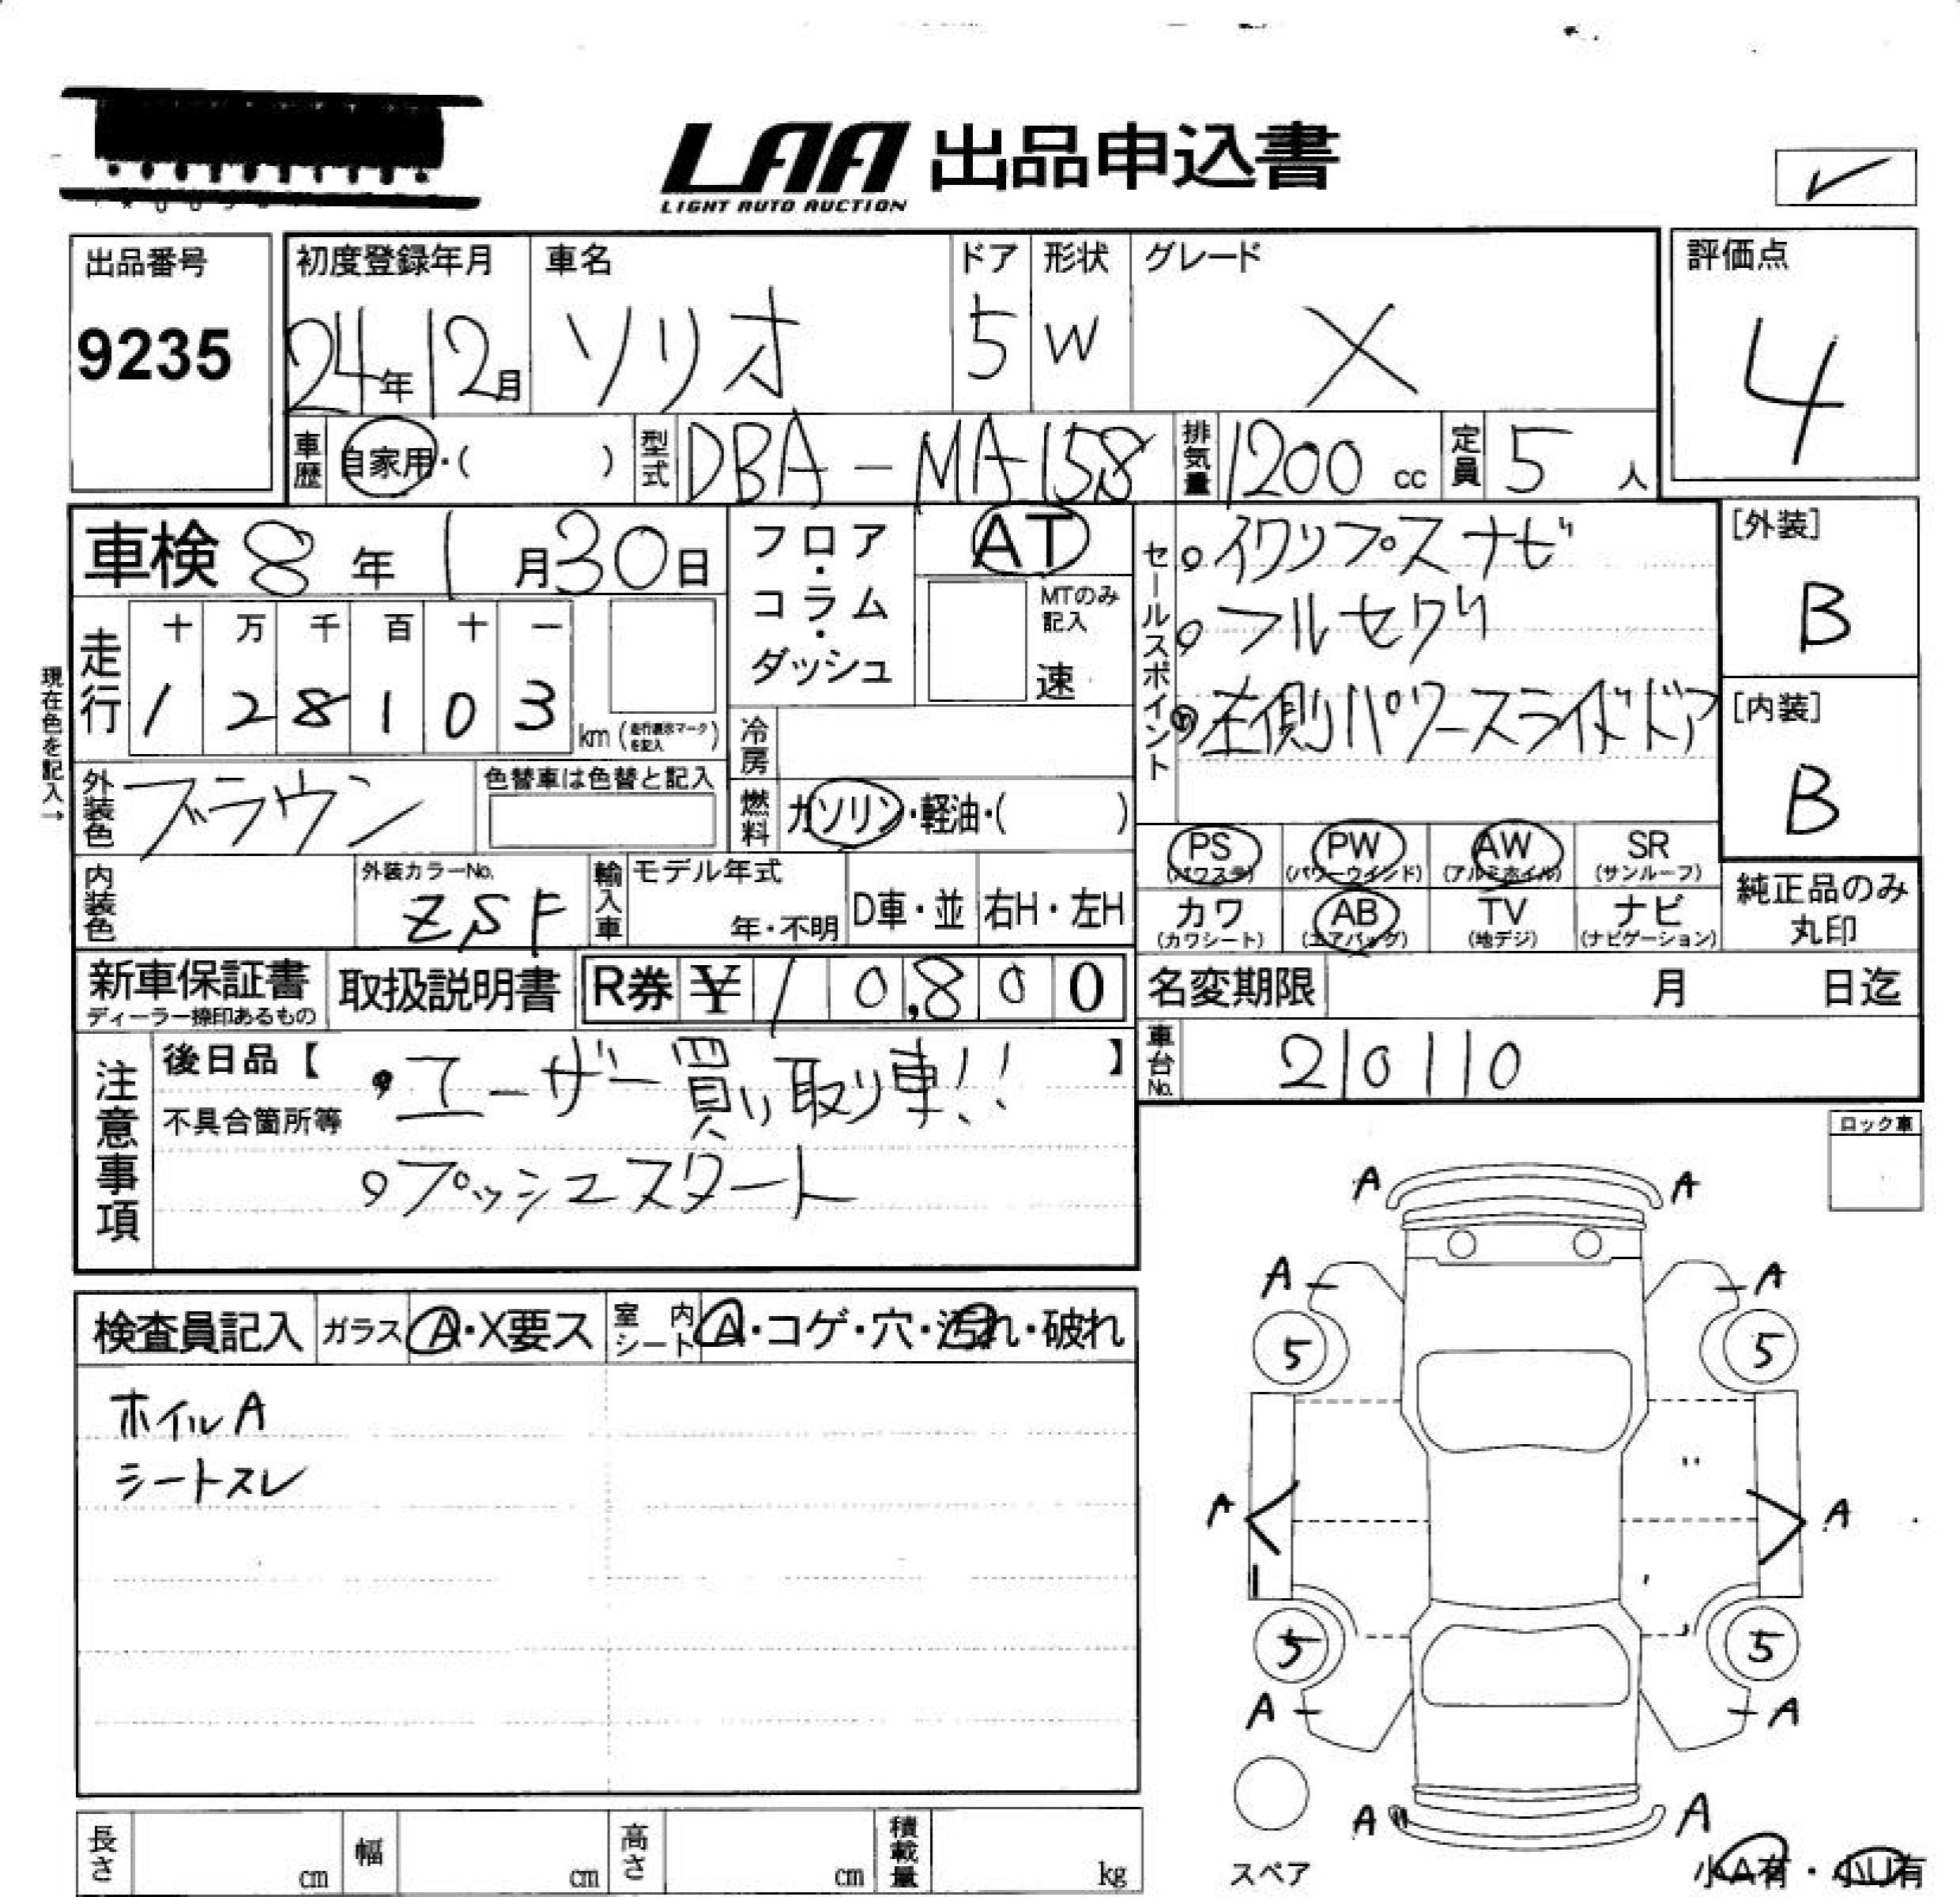 LAA 出品申込書
LIGHT AUTO AUCTION
✓
出品番号
9235
初度登録年月
24年12月
車名
ソリオ
ドア
5
形状
W
グレード
X
評価点
4
車歴
自家用・( )
型式
DBA-MA15S
排気量
1200 cc
定員
5 人
車検 8年 1月 30日
走行
十 万 千 百 十 一
1 2 8 1 0 3 km (走行表示マークを記入)
現在色を記入→
外装色
ブラウン
色替車は色替と記入
内装色
外装カラーNo.
ZSF
フロア・コラム・ダッシュ
AT
MTのみ記入
速
冷房
燃料
ガソリン・軽油・( )
輸入車
モデル年式
年・不明
D車・並
右H・左H
セールスポイント
イクリプスナビ
フルセグ
左側パワースライドドア
[外装]
B
[内装]
B
PS (パワステ)
PW (パワーウインド)
AW (アルミホイル)
SR (サンルーフ)
カワ (カワシート)
AB (エアバッグ)
TV (地デジ)
ナビ (ナビゲーション)
純正品のみ丸印
新車保証書
ディーラー捺印あるもの
取扱説明書
R券 ¥ 10,800
名変期限 月 日迄
車台No.
210110
注意事項
後日品【 】
不具合箇所等
・ユーザー買い取り車!!
プッシュスタート
ロック車
検査員記入
ガラス
A・X要ス
室内シート
A・コゲ・穴・汚れ・破れ
ホイルA
シートスレ
A A
A A
5 5
A A
5 5
A A
A A
スペア
小A有・小U有
長さ cm
幅 cm
高さ cm
積載量 kg